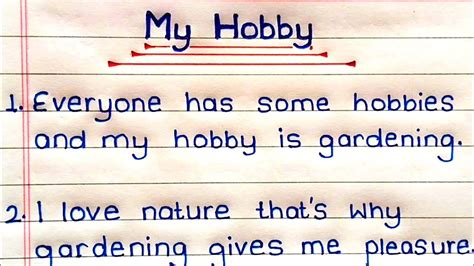 My Hobby
1. Everyone has some hobbies
and my hobby is gardening.
2. I love nature that's why
gardening gives me pleasure.